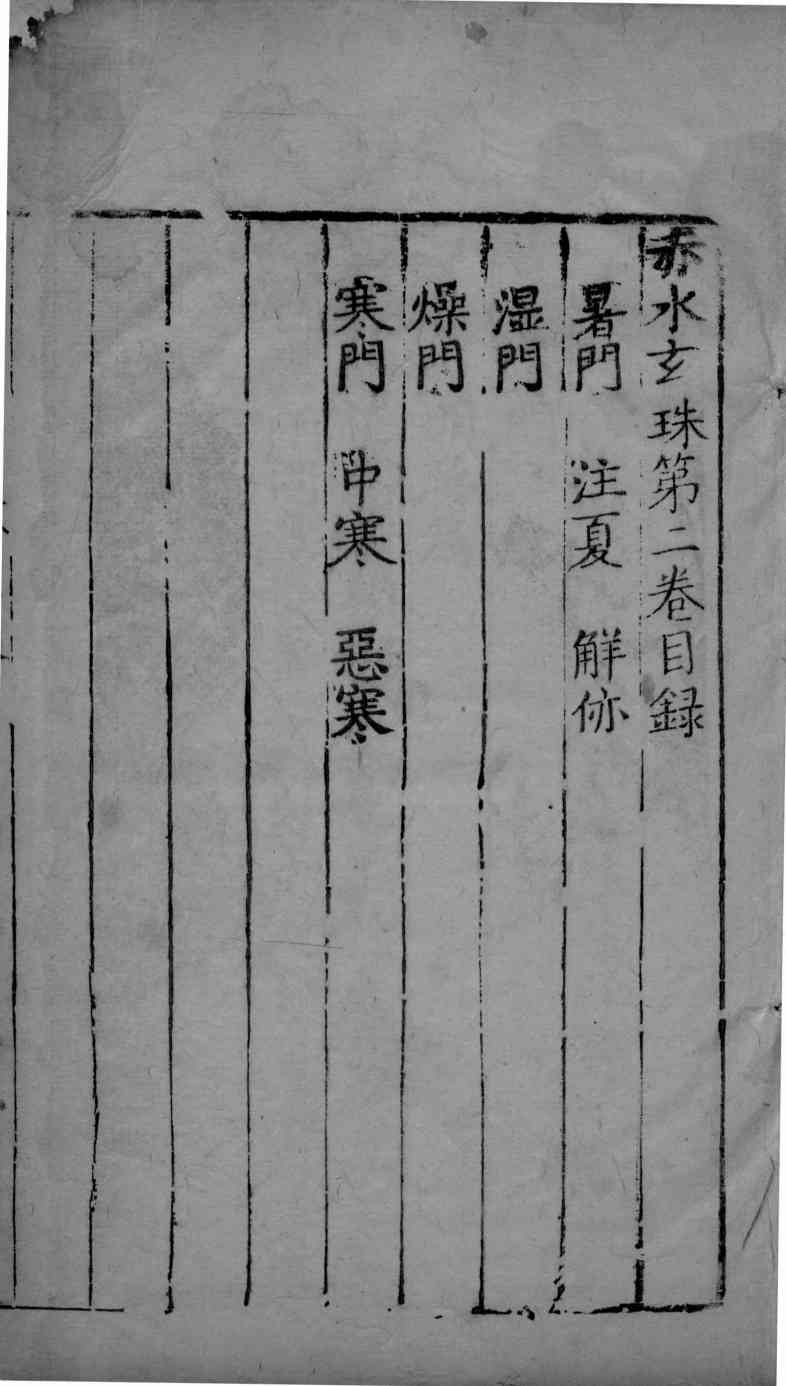 赤水玄珠第二卷目録
暑門 注夏 觧㑊
湿門
燥門
寒門 中寒 惡寒